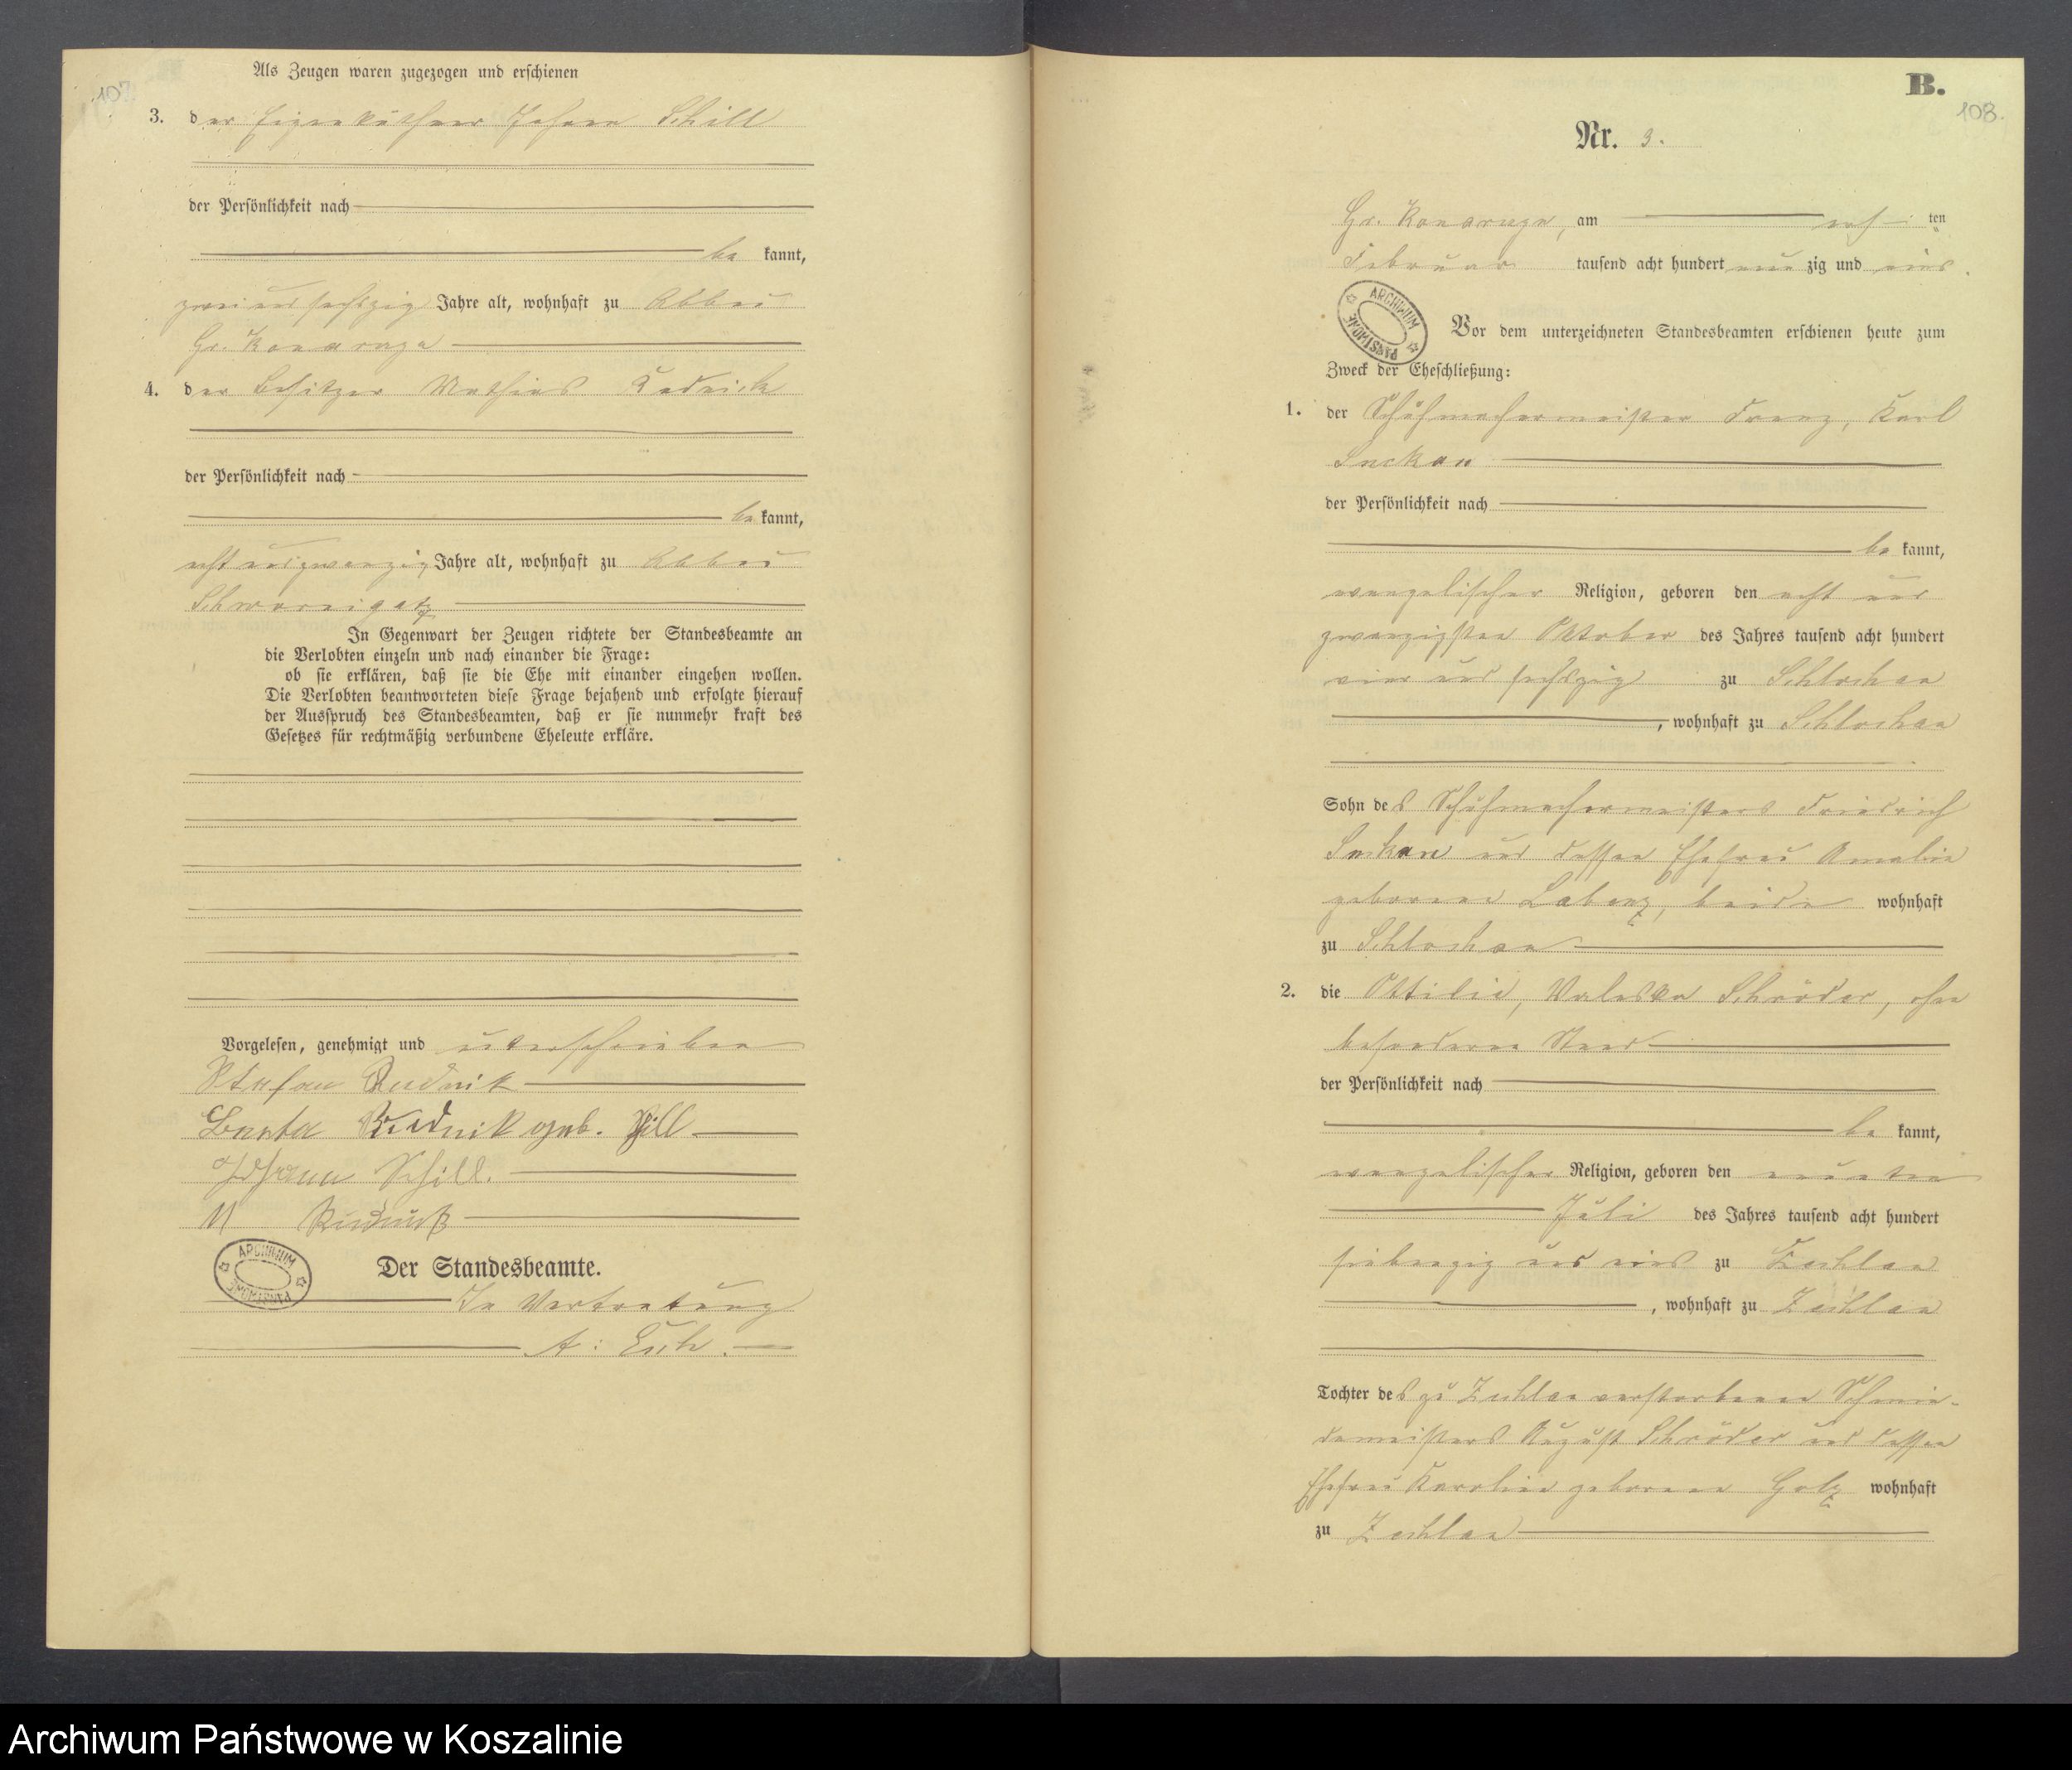 107.
Als Zeugen waren zugezogen und erschienen
3. der Eigenkäthner Johann Schill
der Persönlichkeit nach
be kannt,
zwei und sechszig Jahre alt, wohnhaft zu Abbau
Gr. Konarzyn
4. der Besitzer Mathias Rudnick
der Persönlichkeit nach
be kannt,
acht und zwanzig Jahre alt, wohnhaft zu Abbau
In Gegenwart der Zeugen richtete der Standesbeamte an
die Verlobten einzeln und nach einander die Frage:
ob sie erklären, daß sie die Ehe mit einander eingehen wollen.
Die Verlobten beantworteten diese Frage bejahend und erfolgte hierauf
der Ausspruch des Standesbeamten, daß er sie nunmehr kraft des
Gesetzes für rechtmäßig verbundene Eheleute erkläre.
Vorgelesen, genehmigt und unterschrieben
Stefan Rudnik
Rudnik geb.
Johann Schill.
M
ARCHIWUM PAŃSTWOWE
Der Standesbeamte.
In Vertretung
A:
B.
108.
Nr. 3.
Gr. Konarzyn, am ach ten
Februar tausend acht hundert neun zig und eins.
ARCHIWUM PAŃSTWOWE
Vor dem unterzeichneten Standesbeamten erschienen heute zum
Zweck der Eheschließung:
1. der Schuhmachermeister Franz, Karl
Suckau
der Persönlichkeit nach
be kannt,
evangelischer Religion, geboren den acht und
zwanzigsten Oktober des Jahres tausend acht hundert
vier und sechszig zu Schlochau
, wohnhaft zu Schlochau
Sohn des Schuhmachermeisters Friedrich
Suckau und dessen Ehefrau Amalie
geborene Labenz, beide wohnhaft
zu Schlochau
2. die Ottilie, Valeska Schröder, ohne
besonderen Stand
der Persönlichkeit nach
be kannt,
evangelischer Religion, geboren den neunten
Juli des Jahres tausend acht hundert
siebenzig und eins zu Zechlau
, wohnhaft zu Zechlau
Tochter des zu Zechlau verstorbenen Schmie-
demeisters August Schröder und dessen
Ehefrau Karoline geborene Golz wohnhaft
zu Zechlau
Archiwum Państwowe w Koszalinie